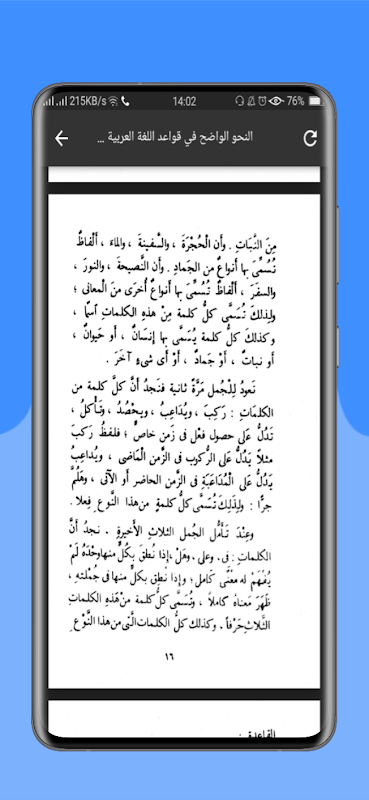 215KB/s 14:02 76%
النحو الواضح في قواعد اللغة العربية ...
مِنَ النَّبَاتِ . وأَن الْحُجْرَةَ ، والسَّفينةَ ، والماءَ ، أَلْفاظٌ
تُسَمَّى بها أنواعٌ من الجَمادِ . وأَن النَّصيحةَ ، والنورَ ،
والسفرَ ، أَلْفَاظٌ تُسَمَّى بها أنواعٌ أُخرَى منَ المعانى ؛
ولِذلكَ تُسَمَّى كلُّ كلمةٍ مِنْ هذه الكلماتِ اسمًا ،
وكذلكَ كلُّ كلمة يُسَمَّى بها إنسَانٌ ، أو حَيوانٌ ،
أو نباتٌ ، أَوْ جَمادٌ ، أَوْ أى شىءٍ آخرَ .
نَعودُ لِلْجُملِ مَرَّةً ثانية فنَجدُ أنَّ كلَّ كلمة من
الكلماتِ : رَكِبَ ، ويُدَاعِبُ ، ويحْصُدُ ، وتَأْكلُ ،
تَدُلُّ عَلَى حصولِ فعْلٍ فى زَمَنٍ خاصٍّ ؛ فلفظُ رَكبَ
مثلاً يَدُلُّ عَلَى الرُّكوبِ فى الزَّمنِ الْمَاضى ، ويُدَاعِبُ
يَدُلُّ عَلَى الْمُدَاعَبَةِ فى الزَّمنِ الحاضرِ أو الآتى ، وهَلُمَّ
جرًّا : ولِذلِكَ تُسَمَّى كلُّ كلمةٍ من هذا النَّوعِ فعلا .
وعِنْدَ تَأَمُّلِ الجُملِ الثلاثِ الأخيرةِ . نجدُ أنَّ
الكلماتِ : فى ، وعلى ، وهَلْ ، إذا نُطِقَ بكلٍّ منها وحْدَهُ لَمْ
يُفْهَمْ له معْنًى كامل ؛ وإذا نطِق بكلٍّ منها فى جُمْلتهِ ،
ظَهَرَ مَعناهُ كاملاً ، وتُسَمَّى كلُّ كلمة منْ هَذِهِ الكلماتِ
الثَّلاثِ حَرْفاً . وكذلك كلُّ الكلماتِ الَّتى من هذا النَّوْعِ
١٦
القاعدة :